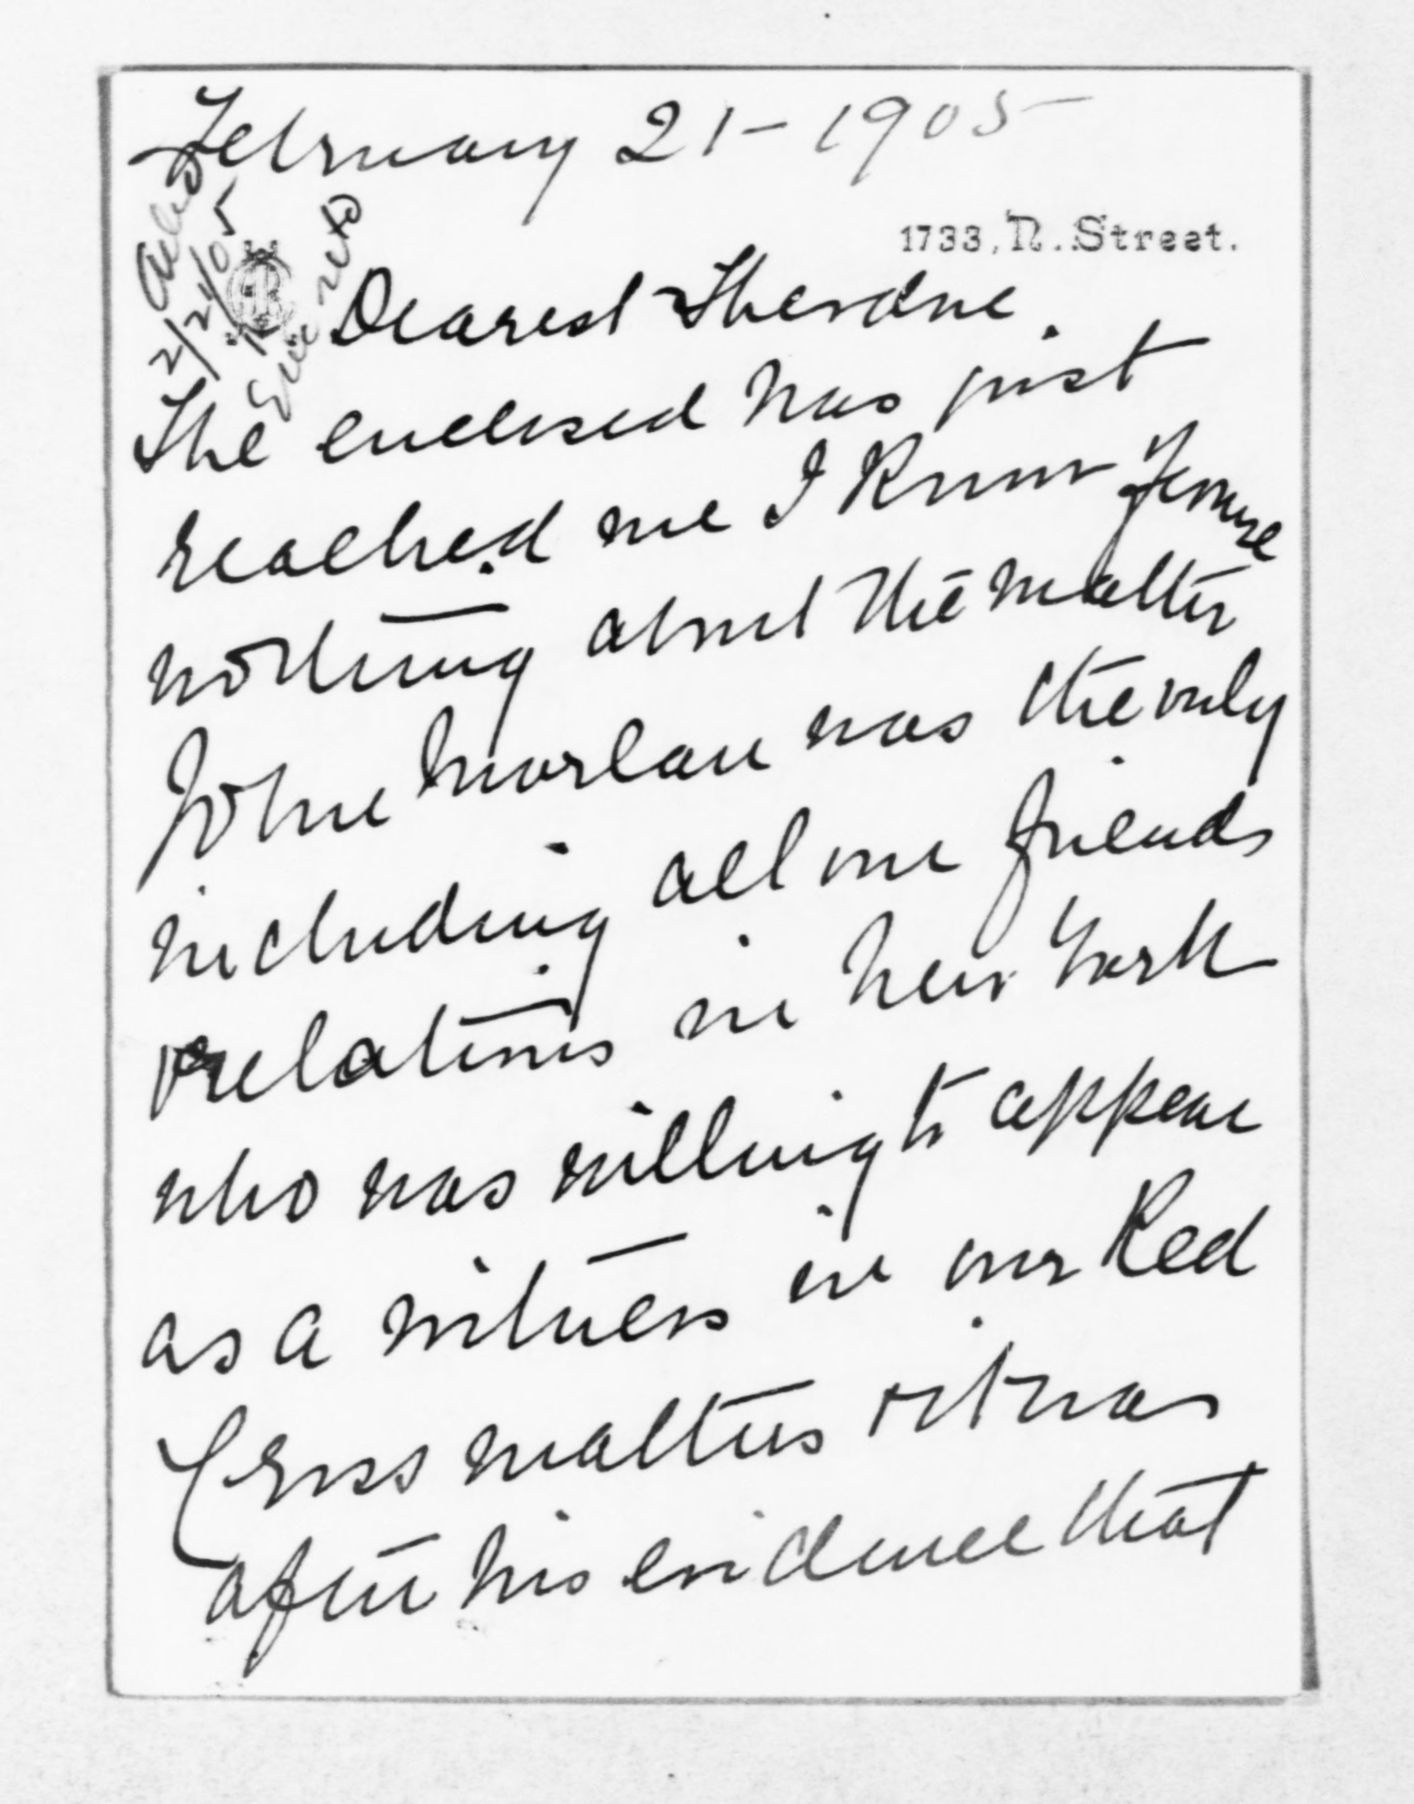 February 21-1905
1733, N. Street.
Ackd
2/21/05
Enc retd
Dearest Theodore.
The enclosed has just
reached me I know
nothing about the matter
John was the only
including all our friends
relations in New York
who was willing to appear
as a witness in our Red
Cross matters & it was
after his evidence that